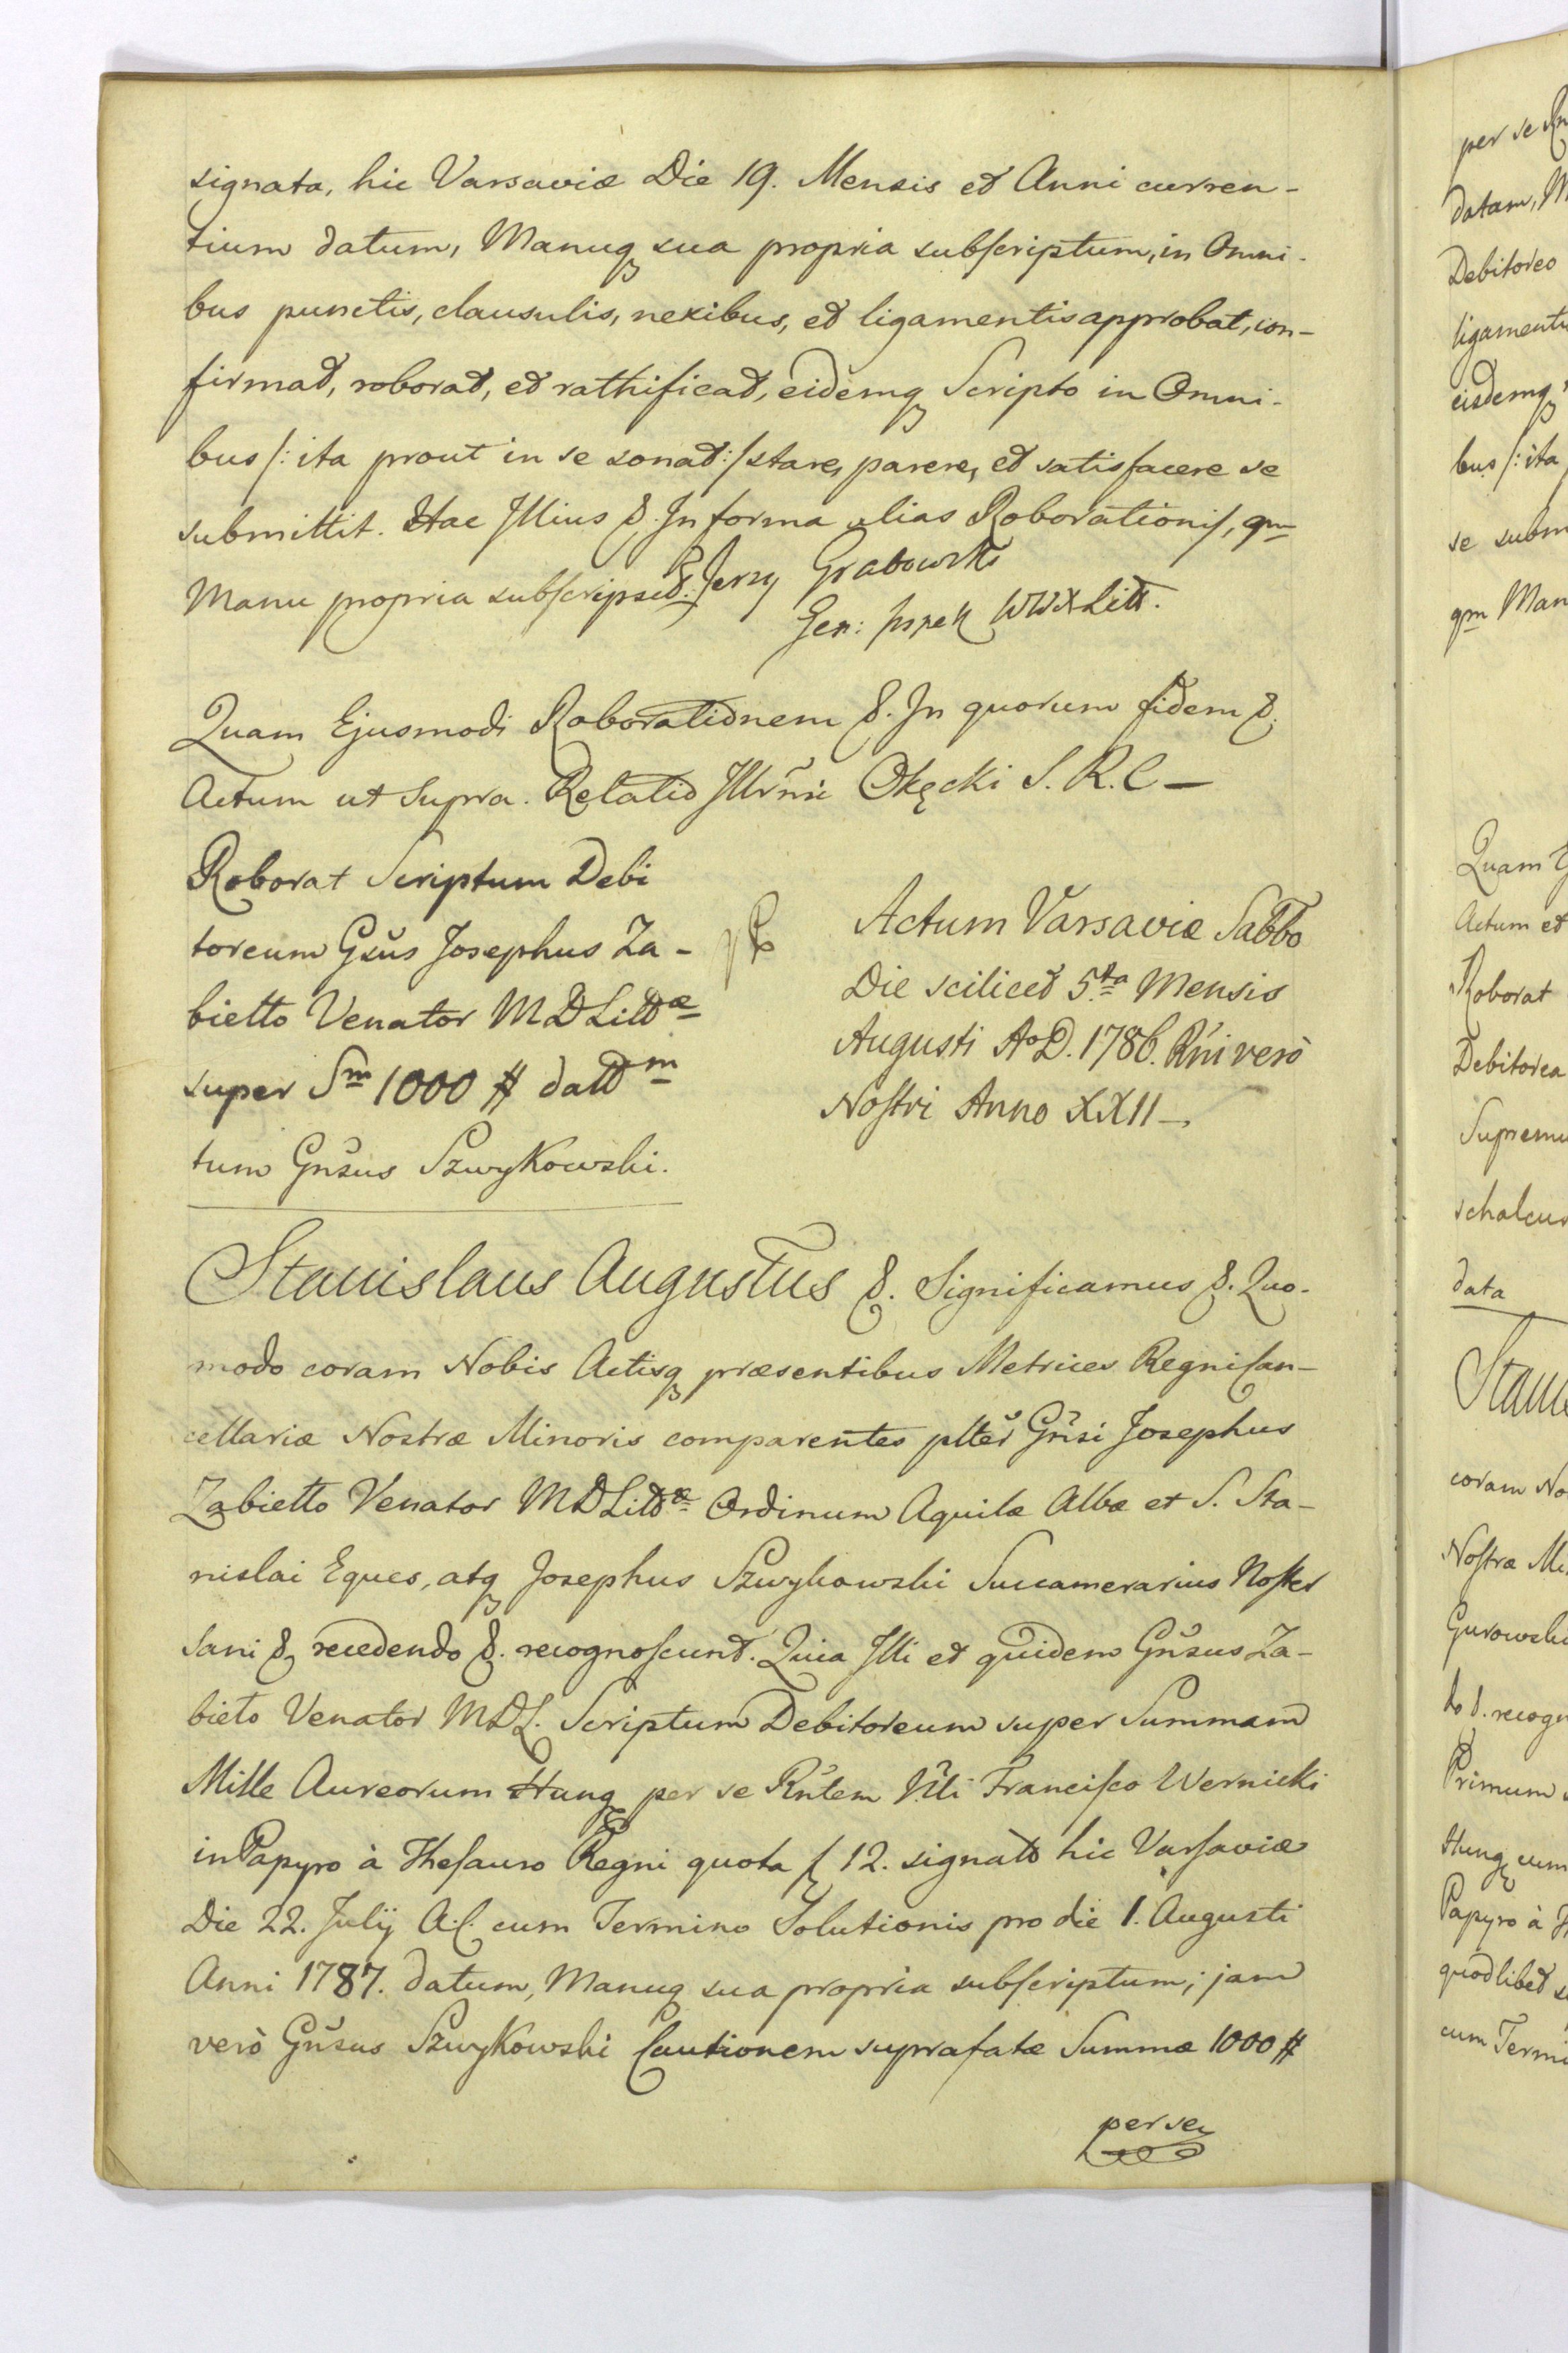 signata, hic Varsaviæ Die 19. Mensis et Anni curren-
tium datum, Manuq sua propria subscriptum, in Omni-
bus punctis, clausulis, nexibus, et ligamentis approbat, con-
firmat, roborat, et rathificat, eidemq Scripto in Omni-
bus /: ita prout in se sonat :/ stare, parere, et satisfacere se
submittit. Hac Illius &. In forma alias Roborationis, qm
Manu propria subscripsit. Jerzy Grabowski
Gen: WWXLitt.
Quam Ejusmodi Roborationem &. In quorum fidem &.
Actum ut Supra. Relatio Illrm̃i Okęcki S. R. C –
Roborat Scriptum Debi
toreum Gsũs Josephus Za-
biełło Venator MDLittæ
super Sm 1000 # datt m
tum Gñsus Szwykowski.
Actum Varsaviæ Sabbo
Die scilicet 5ta Mensis
Augusti Ao D. 1786. Rñi verò
Nostri Anno XXII –
Stanislaus Augustus &. Significamus &. Quo-
modo coram Nobis Actisq præsentibus Metrices Regni Can-
cellariæ Nostræ Minoris comparentes plter Gñsi Josephus
Zabiełło Venator MDLittæ Ordinum Aquilæ Albæ et S. Sta-
nislai Eques, atq Josephus Szwykowski Succamerarius Noster
sani & recedendo &. recognoscunt. Quia Illi et quidem Gñsus Za-
bieło Venator MDL. Scriptum Debitoreum super Summam
Mille Aureorum Hung per se Rñtem Nli Francisco Wernicki
in Papyro à Thesauro Regni quota f 12. signato hic Varsaviæ
Die 22. Julij A.C. cum Termino Solutionis pro die 1. Augusti
Anni 1787. datum, Manuq sua propria subscriptum; jam
verò Gñsus Szwykowski Cautionem suprafatæ Summæ 1000 #
per se
per se
datam, M
Debitoreo
ligamenti
eisdemq
bus /: ita
se subm
qm Man
Quam E
Actum et
Roborat
Debitorea
Supremu
schalcus
data
Stani
coram No
Nostræ Mi
Gurowski
do &. recogn
Primum
Hung cum
Papyro à
quodlibet
cum Termi